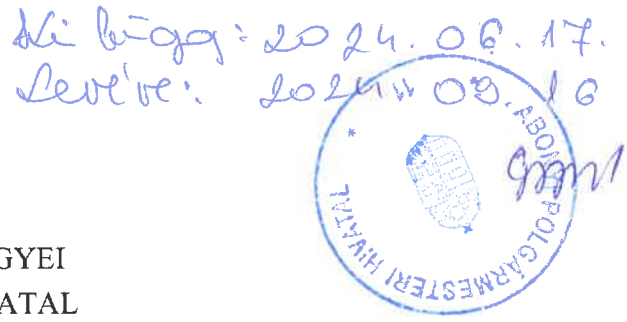 Ki függ: 2024. 06. 17.
Levéve: 2024 16
ABONYI POLGÁRMESTERI HIVATAL *
GYEI
VATAL